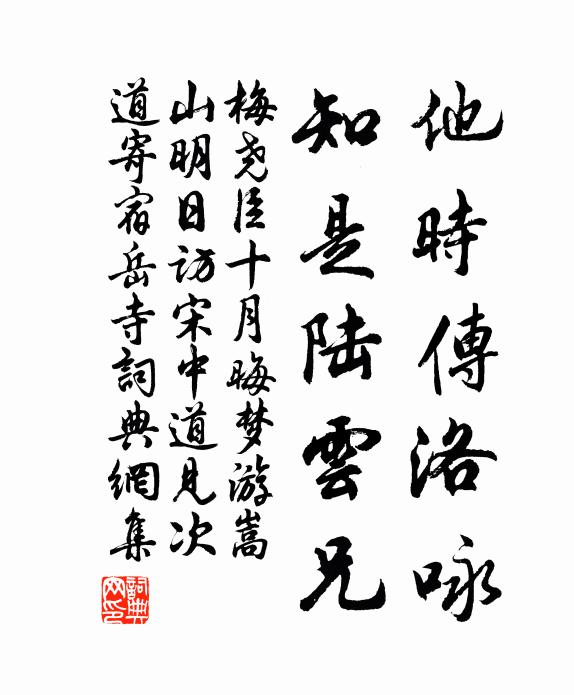 他時傳洛咏
知是陆雲兄
梅尧臣十月晦梦游嵩
山明日访宋中道見次
道寄宿岳寺詞典網集
詞典网印